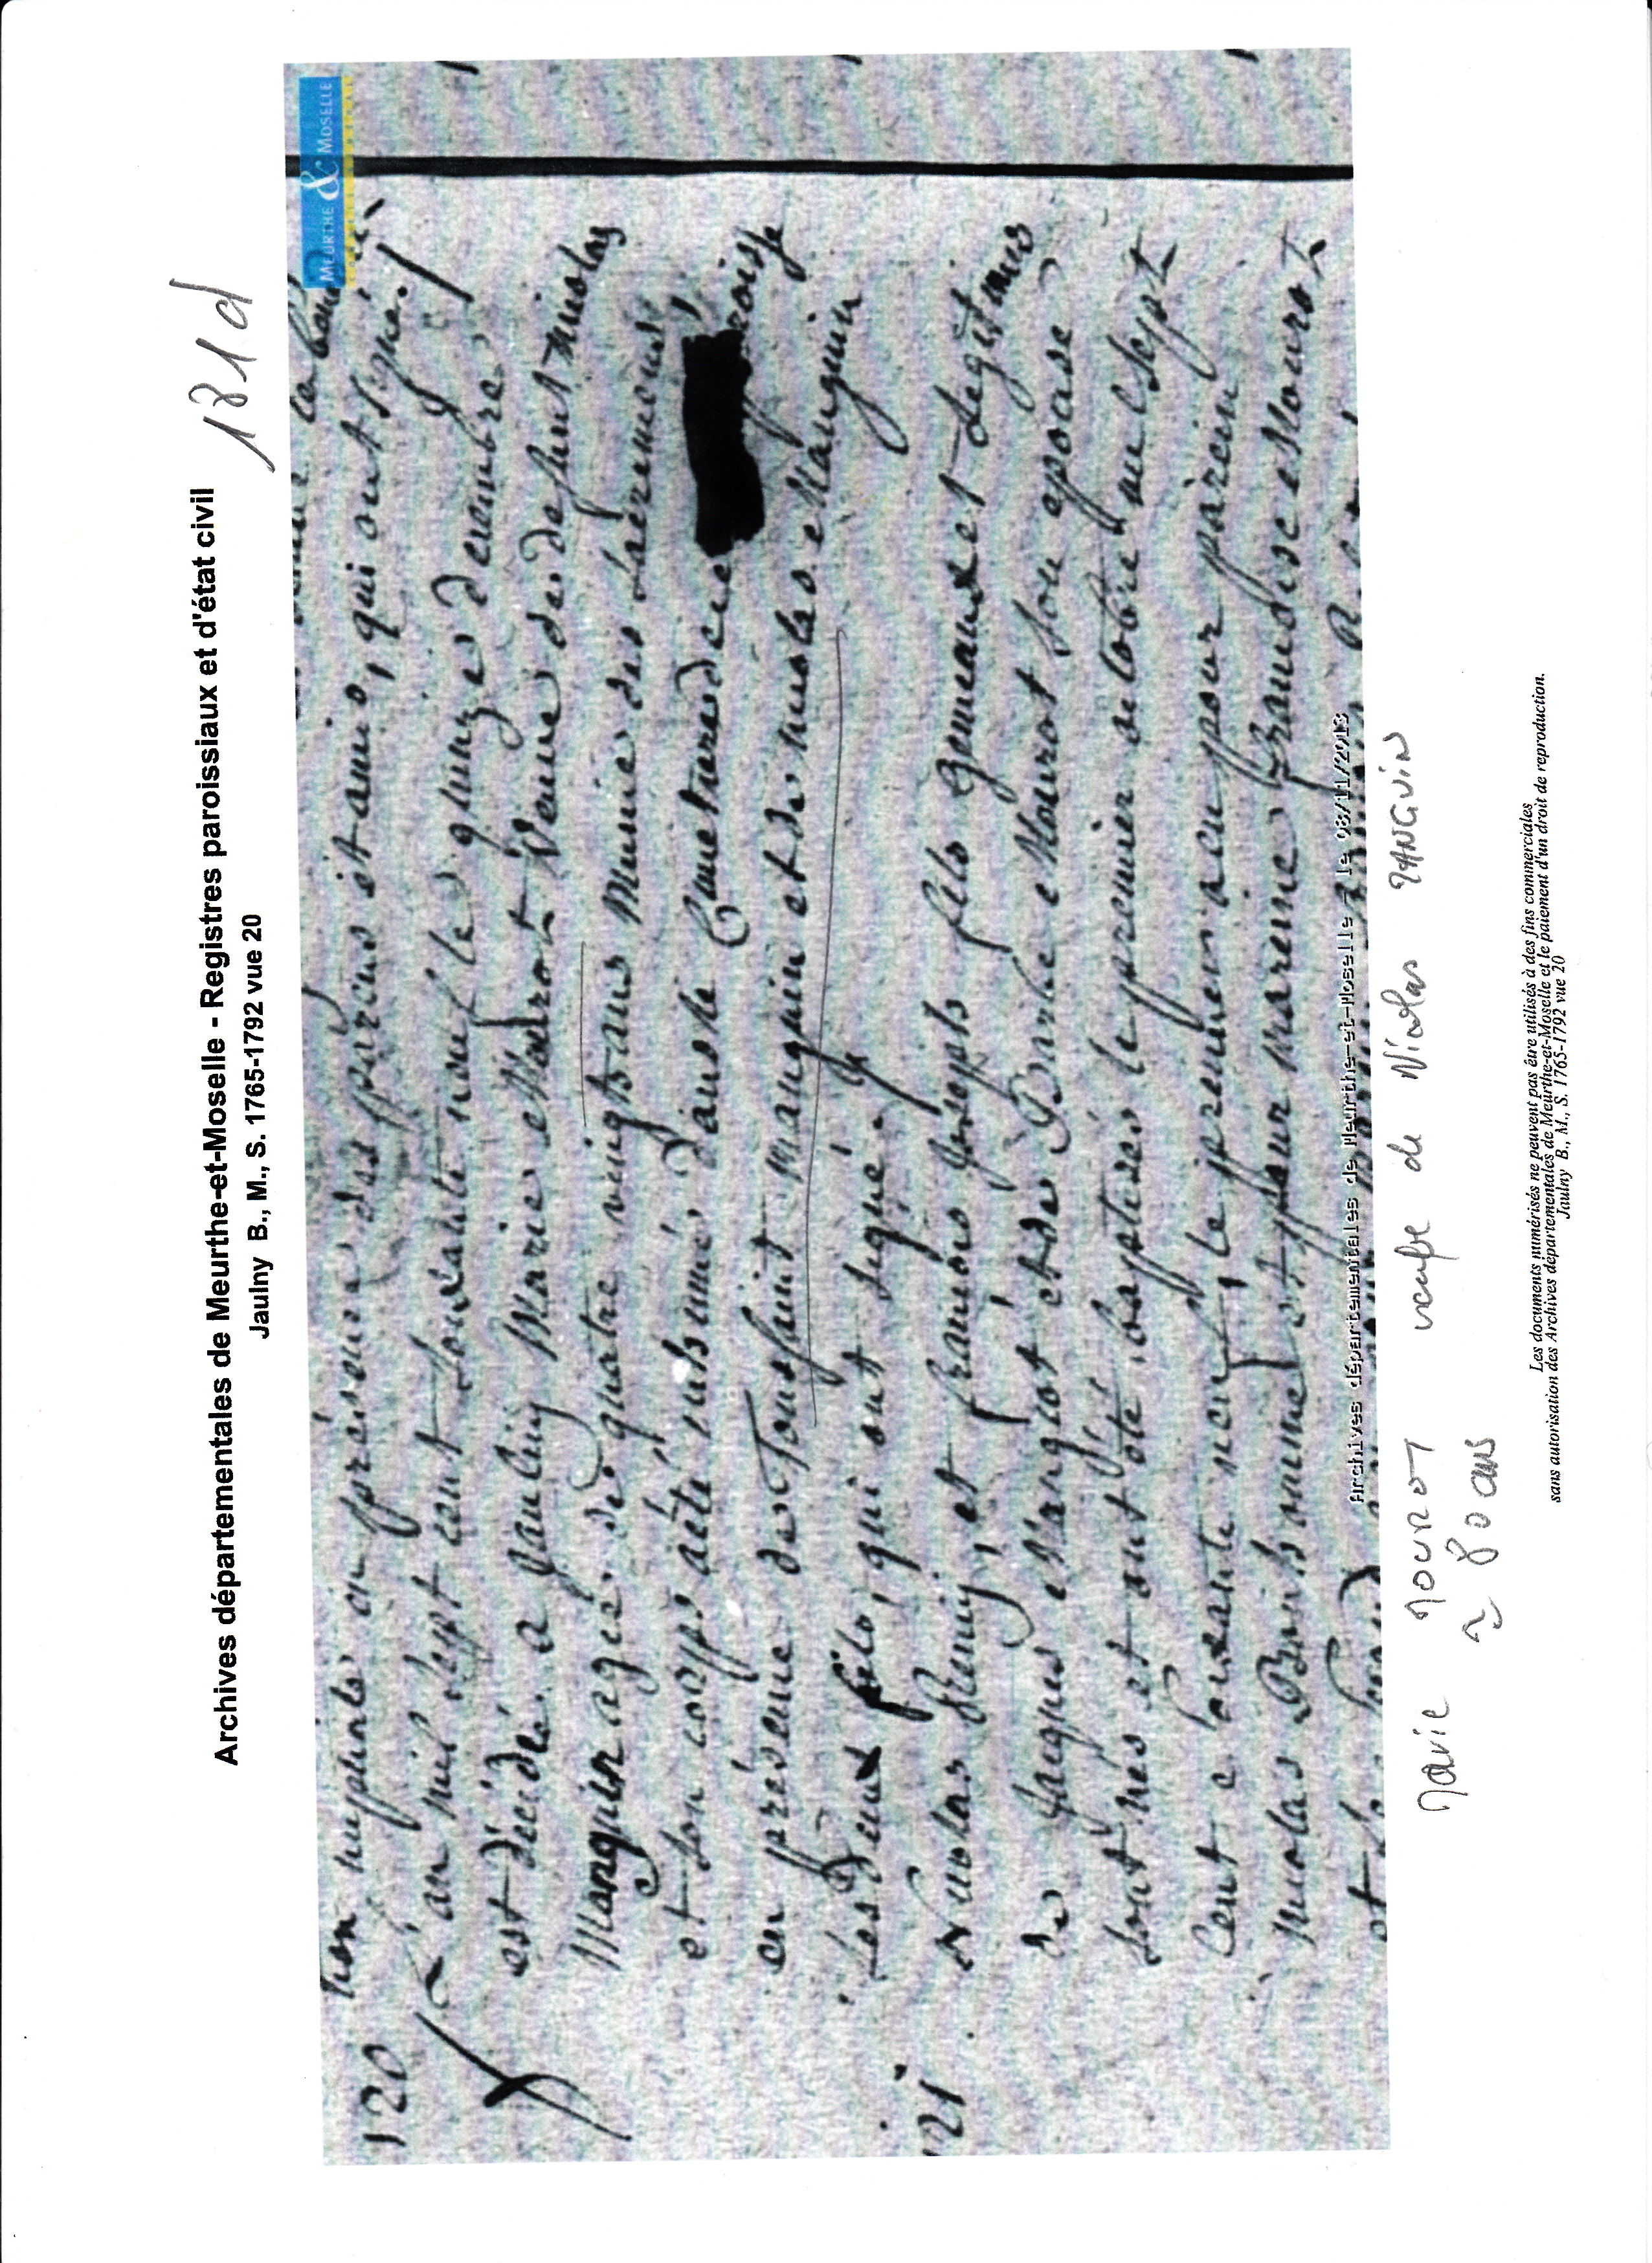 Archives départementales de Meurthe-et-Moselle - Registres paroissiaux et d'état civil
Jaulny B., M., S. 1765-1792 vue 20
181d
MEURTHE & MOSELLE
120
en présence des parens et amis, qui ont signé.
L'an mil sept cent soixante neuf le quinze decembre
est décédé a Jaulny Marie Mourot Veuve de defunt nicolas
Manguin agée de quatre vingts ans Munie des sacremens,
et son corps a eté inhumé dans le Cimetiere de cette paroisse
en présence de Toussaint manguin et de nicolas Manguin
ses deux fils, qui ont signé.
121
Nicolas Remy, et françois joseph fils gemeaux et legitimes
de jaques Mangeot et de Barbe Mourot son epouse
sont nés et ont été baptises le premier octobre mil sept
Cent soixante neuf, le premier a eu pour parein
nicolas et pour mareine françoise Mourot
et le second
Archives départementales de Meurthe-et-Moselle - le 08/11/2013
Marie MOUROT veufe de Nicolas MANGUIN
~ 80 ans
Les documents numérisés ne peuvent pas être utilisés à des fins commerciales
sans autorisation des Archives départementales de Meurthe-et-Moselle et le paiement d'un droit de reproduction.
Jaulny B., M., S. 1765-1792 vue 20